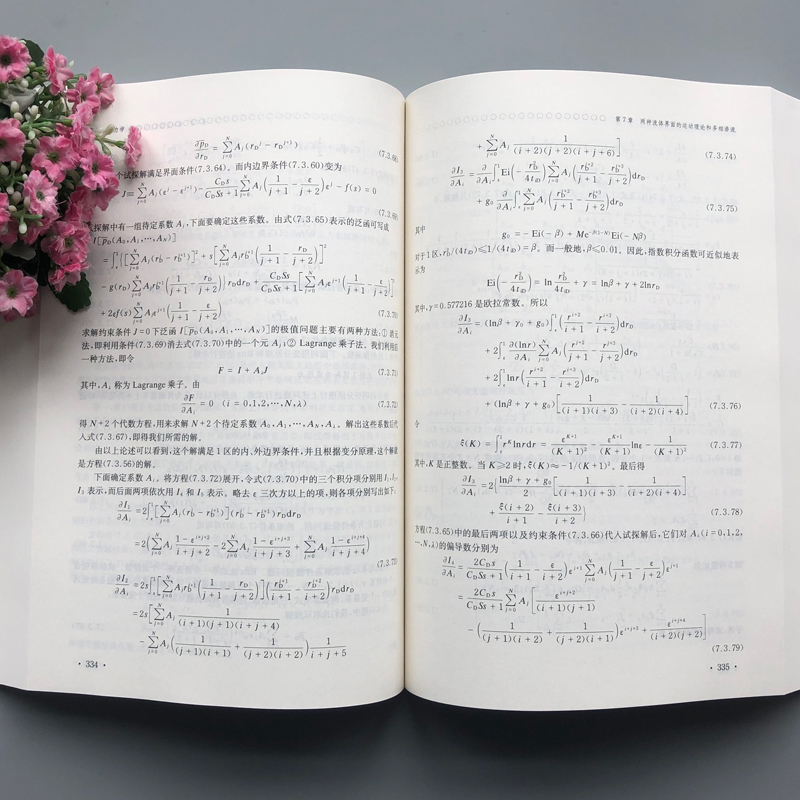 力学
∂p̄_D/∂r_D = Σ_{j=0}^{N} A_j(r_D^j − r_D^{j+1}) (7.3.68)
个试探解满足界面条件(7.3.64)。而内边界条件(7.3.60)变为
J = Σ_{j=0}^{N} A_j(ε^j − ε^{j+1}) − C_D s/(C_D Ss+1) Σ_{j=0}^{N} A_j(1/(j+1) − ε/(j+2)) ε^{j+1} − f(s) = 0
(7.3.69)
试探解中有一组待定系数 A_j,下面要确定这些系数。由式(7.3.65)表示的泛函可写成
I[p̄_D(A_0,A_1,⋯,A_N)]
= ∫_ε^1 {[Σ_{j=0}^{N} A_j(r_D^j − r_D^{j+1})]² + s[Σ_{j=0}^{N} A_j r_D^{j+1}(1/(j+1) − r_D/(j+2))]²
− g(r_D) Σ_{j=0}^{N} A_j r_D^{j+1}(1/(j+1) − r_D/(j+2))} r_D dr_D + C_D Ss/(C_D Ss+1) [Σ_{j=0}^{N} A_j ε^{j+1}(1/(j+1) − ε/(j+2))]²
+ 2εf(s) Σ_{j=0}^{N} A_j ε^{j+1}(1/(j+1) − ε/(j+2)) (7.3.70)
求解约束条件 J=0 下泛函 I[p̄_D(A_0,A_1,⋯,A_N)] 的极值问题主要有两种方法:① 消元
法,即利用条件(7.3.69)消去式(7.3.70)中的一个元 A_j;② Lagrange 乘子法。我们利用后
一种方法,即令
F = I + A_λJ (7.3.71)
其中,A_λ 称为 Lagrange 乘子。由
∂F/∂A_i = 0 (i=0,1,2,⋯,N,λ) (7.3.72)
得 N+2 个代数方程,用来求解 N+2 个待定系数 A_0,A_1,⋯,A_N,A_λ。解出这些系数后代
入式(7.3.67),即得我们所需的解。
由以上论述可以看到,这个解满足 1 区的内、外边界条件,并且根据变分原理,这个解就
是方程(7.3.56)的解。
下面确定系数 A_i,将方程(7.3.72)展开,令式(7.3.70)中的三个积分项分别用 I_1,I_2,
I_3 表示,而后面两项依次用 I_4 和 I_5 表示。略去 ε 三次方以上的项,则各项分别写出如下:
∂I_1/∂A_i = 2∫_ε^1 [Σ_{j=0}^{N} A_j(r_D^j − r_D^{j+1})](r_D^i − r_D^{i+1}) r_D dr_D
= 2(Σ_{j=0}^{N} A_j (1−ε^{i+j+2})/(i+j+2) − 2Σ_{j=0}^{N} A_j (1−ε^{i+j+3})/(i+j+3) + Σ_{j=0}^{N} A_j (1−ε^{i+j+4})/(i+j+4))
(7.3.73)
∂I_2/∂A_i = 2s∫_ε^1 [Σ_{j=0}^{N} A_j r_D^{j+1}(1/(j+1) − r_D/(j+2))](r_D^{i+1}/(i+1) − r_D^{i+2}/(i+2)) r_D dr_D
= 2s[Σ_{j=0}^{N} A_j 1/((i+1)(j+1)(i+j+4))
− Σ_{j=0}^{N} A_j(1/((j+1)(i+1)) + 1/((j+2)(i+2))) 1/(i+j+5)
· 334 ·
第 7 章 两种流体界面的运动理论和多相渗流
+ Σ_{j=0}^{N} A_j 1/((i+2)(j+2)(i+j+6))] (7.3.74)
∂I_3/∂A_i = ∂/∂A_i ∫_ε^1 Ei(−r_D²/(4t_{iD})) Σ_{j=0}^{N} A_j(r_D^{j+2}/(j+1) − r_D^{j+3}/(j+2)) dr_D
+ g_0 ∂/∂A_i ∫_ε^1 Σ_{j=0}^{N} A_j(r_D^{j+2}/(j+1) − r_D^{j+3}/(j+2)) dr_D (7.3.75)
其中
g_0 = −Ei(−β) + Me^{−β(1−N)} Ei(−Nβ)
对于 1 区,r_D²/(4t_{iD}) ≤ 1/(4t_{iD}) = β。而一般地,β≤0.01。因此,指数积分函数可近似地表
示为
Ei(−r_D²/(4t_{iD})) = ln r_D²/(4t_{iD}) + γ = lnβ + γ + 2lnr_D
其中,γ=0.577216 是欧拉常数。所以
∂I_3/∂A_i = (lnβ + γ_0 + g_0) ∫_ε^1 (r^{i+2}/(i+1) − r^{i+3}/(i+2)) dr_D
+ 2∫_ε^1 ∂(lnr)/∂A_i Σ_{j=0}^{N} A_j(r^{j+2}/(j+1) − r^{j+3}/(j+2)) dr_D
+ 2∫_ε^1 lnr(r^{i+2}/(i+1) − r^{i+3}/(i+2)) dr_D
+ (lnβ + γ + g_0)[1/((i+1)(i+3)) − 1/((i+2)(i+4))] (7.3.76)
令
ξ(K) = ∫_ε^1 r^K lnr dr = ε^{K+1}/(K+1)² − ε^{K+1}/(K+1) lnε − 1/(K+1)² (7.3.77)
其中,K 是正整数。当 K≥2 时,ξ(K)≈−1/(K+1)²。最后得
∂I_3/∂A_i = 2{(lnβ + γ + g_0)/2 [1/((i+1)(i+3)) − 1/((i+2)(i+4))]
+ ξ(i+2)/(i+1) − ξ(i+3)/(i+2)} (7.3.78)
方程(7.3.65)中的最后两项以及约束条件(7.3.66)代入试探解后,它们对 A_i(i=0,1,2,
⋯,N,λ)的偏导数分别为
∂I_4/∂A_i = 2C_D s/(C_D Ss+1) (1/(i+1) − ε/(i+2)) ε^{i+1} Σ_{j=0}^{N} A_j(1/(j+1) − ε/(j+2)) ε^{j+1}
= 2C_D s/(C_D Ss+1) Σ_{j=0}^{N} A_j [ε^{i+j+2}/((i+1)(j+1))
− (1/((j+1)(i+2)) + 1/((j+2)(i+1))) ε^{i+j+3} + ε^{i+j+4}/((i+2)(j+2))]
(7.3.79)
· 335 ·